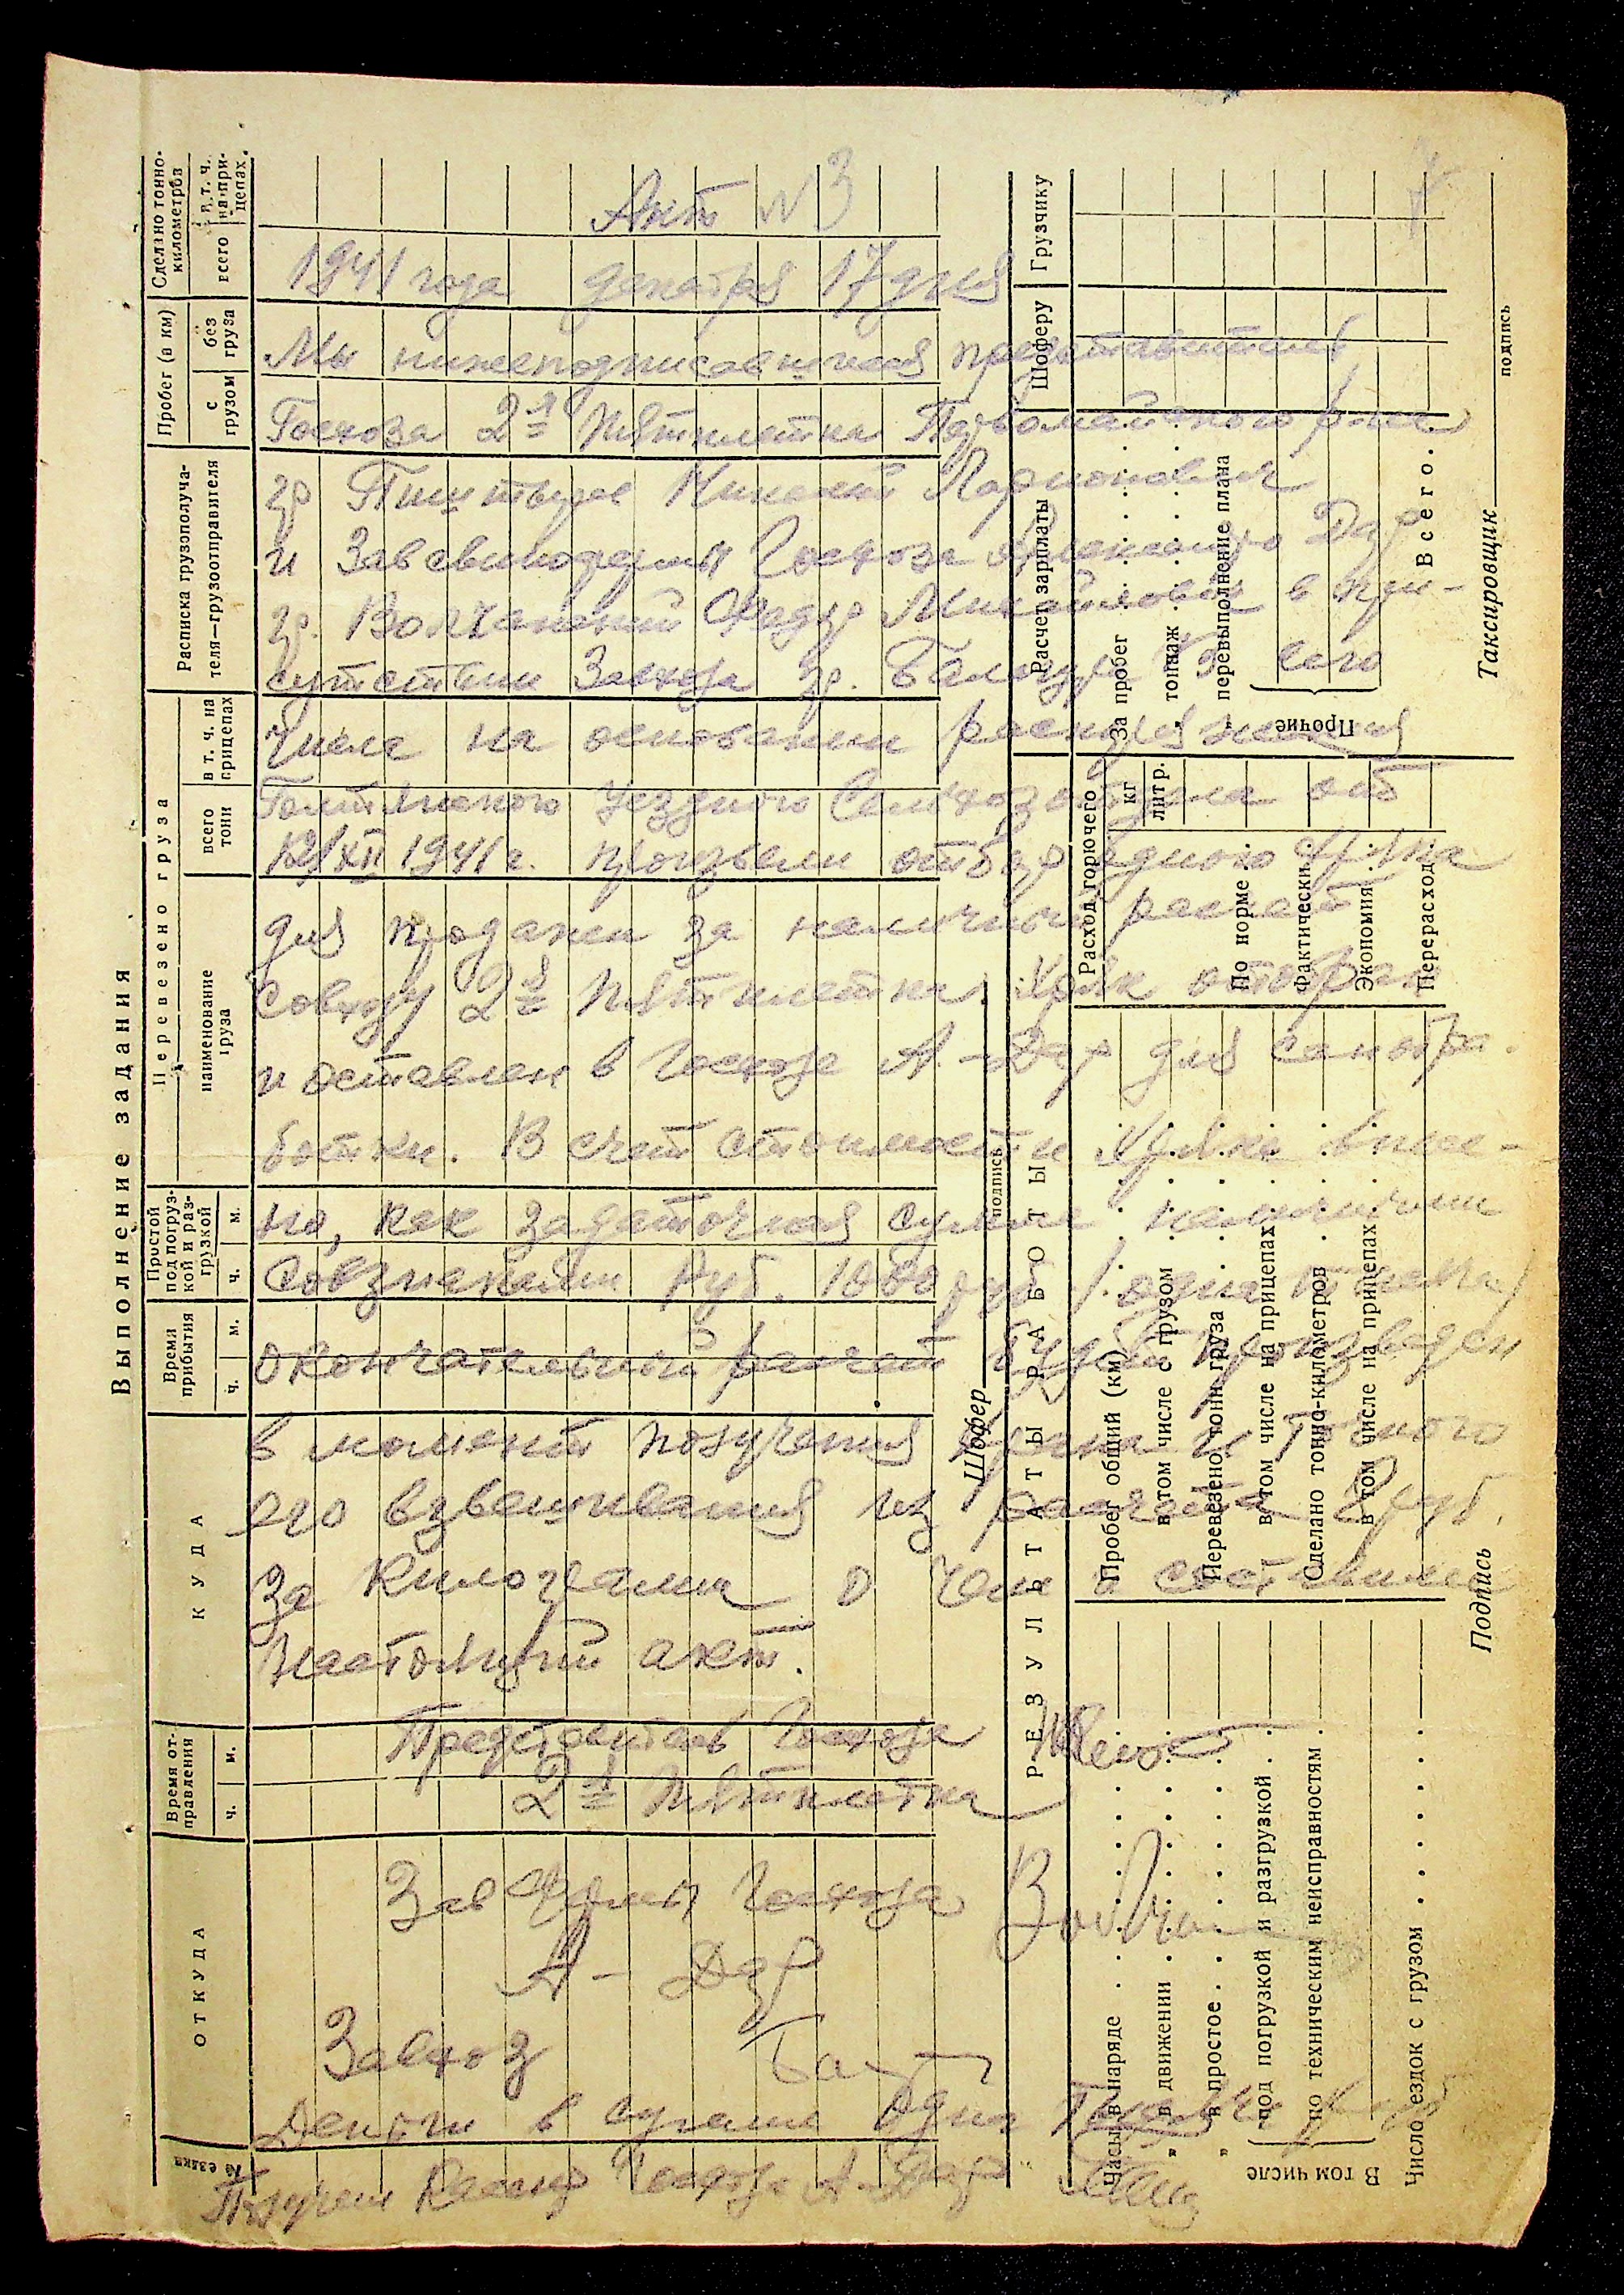 Акт №3
1941 года декабря 17 дня
Мы нижеподписавшиеся представитель
Госхоза 2я Пятилетка Первомайского р-на
гр Николай Ларионович
и Завсвинофермы Госхоза Александро Дар
гр. Волчанский Федор Михайлович в при-
сутствии Завхоза гр.
числа на основании распоряжения
Голтянского Уездного Сельхозотдела от
12/XII 1941 г. произвели отбор одного хряка
для продажи за наличный расчет
Совхозу 2я Пятилетка. Хряк отобран
и оставлен в Госхозе А.-Дар для
ботки. В счет стоимости Хряка внесе-
но, как задаточная сумма наличными
Совзнаками Руб. 1000 руб (одна тысяча)
окончательный расчет будет произведен
в момент получения хряка и точного
его взвешивания из расчета руб.
За Килограмм о чем и составлен
настоящий акт.
Представитель Госхоза
2я Пятилетка
Зав Фермы Госхоза
А- Дар
Завхоз
Деньги в сумме Одна Тысяча руб
Получил Кассир Госхоза А-Дар
Выполнение задания
№ ездки
ОТКУДА
Время от-
правления
ч.
м.
КУДА
Время
прибытия
ч.
м.
Простой
под погруз-
кой и раз-
грузкой
ч.
м.
Перевезено груза
наименование
груза
всего
тонн
в т. ч. на
прицепах
Расписка грузополуча-
теля—грузоотправителя
Пробег (в км)
с
грузом
без
груза
Сделано тонно-
километров
всего
в т. ч.
на при-
цепах
Шофер
подпись
РЕЗУЛЬТАТЫ РАБОТЫ
Часы в наряде
" в движении
" в простое
В том числе
под погрузкой и разгрузкой
по техническим неисправностям
Число ездок с грузом
Пробег общий (км)
в том числе с грузом
Перевезено тонн груза
в том числе на прицепах
Сделано тонно-километров
в том числе на прицепах
Подпись
Расход горючего
кг
литр.
По норме
Фактически
Экономия
Перерасход
Расчет зарплаты
Шоферу
Грузчику
За пробег
" тоннаж
" перевыполнение плана
Прочие
Всего
Таксировщик
подпись